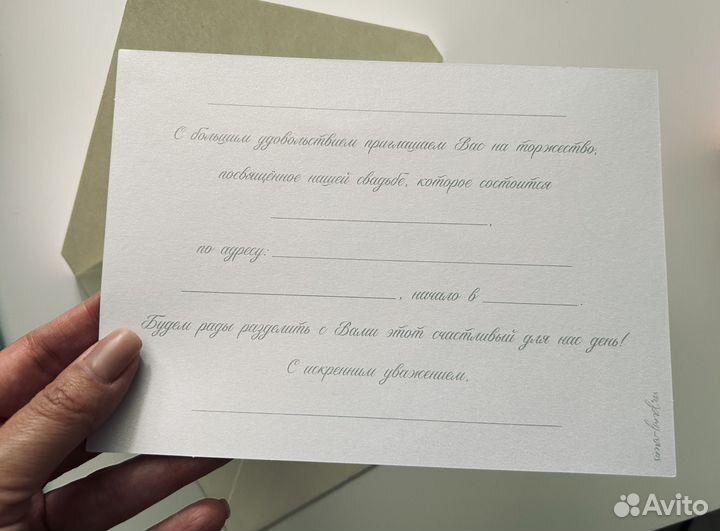 С большим удовольствием приглашаем Вас на торжество,
посвящённое нашей свадьбе, которое состоится
,
по адресу:
, начало в .
Будем рады разделить с Вами этот счастливый для нас день!
С искренним уважением,
sima-land.ru
Avito